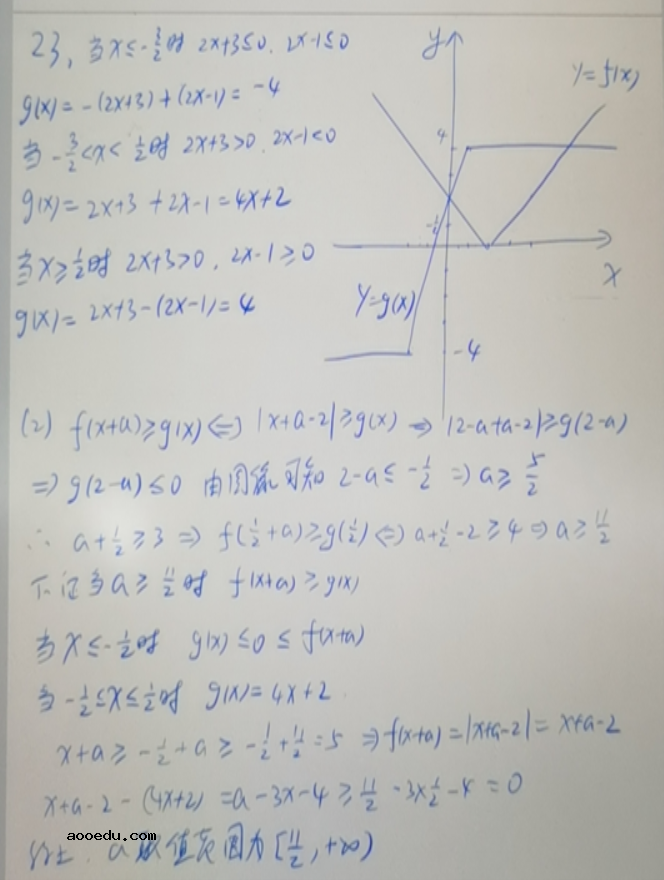 23, 当x≤-3/2时 2x+3≤0, 2x-1≤0
g(x)= -(2x+3)+(2x-1)= -4
当-3/2<x<1/2时 2x+3>0, 2x-1<0
g(x)= 2x+3+2x-1=4x+2
当x≥1/2时 2x+3>0, 2x-1≥0
g(x)= 2x+3-(2x-1)=4
y
Y=f(x)
4
-1/2
X
Y=g(x)
-4
(2) f(x+a)≥g(x)⇔|x+a-2|≥g(x) ⇒ |2-a+a-2|≥g(2-a)
⇒g(2-a)≤0 由图象可知 2-a≤-1/2 ⇒a≥5/2
∴ a+1/2≥3 ⇒ f(1/2+a)≥g(1/2)⇔a+1/2-2≥4⇒a≥11/2
下证当a≥11/2时 f(x+a)≥g(x)
当x≤-1/2时 g(x)≤0≤f(x+a)
当-1/2≤x≤1/2时 g(x)=4x+2.
x+a≥-1/2+a≥-1/2+11/2=5 ⇒f(x+a)=|x+a-2|=x+a-2
x+a-2-(4x+2)=a-3x-4≥11/2-3×1/2-4=0
aooedu.com
综上, a取值范围为[11/2,+∞)